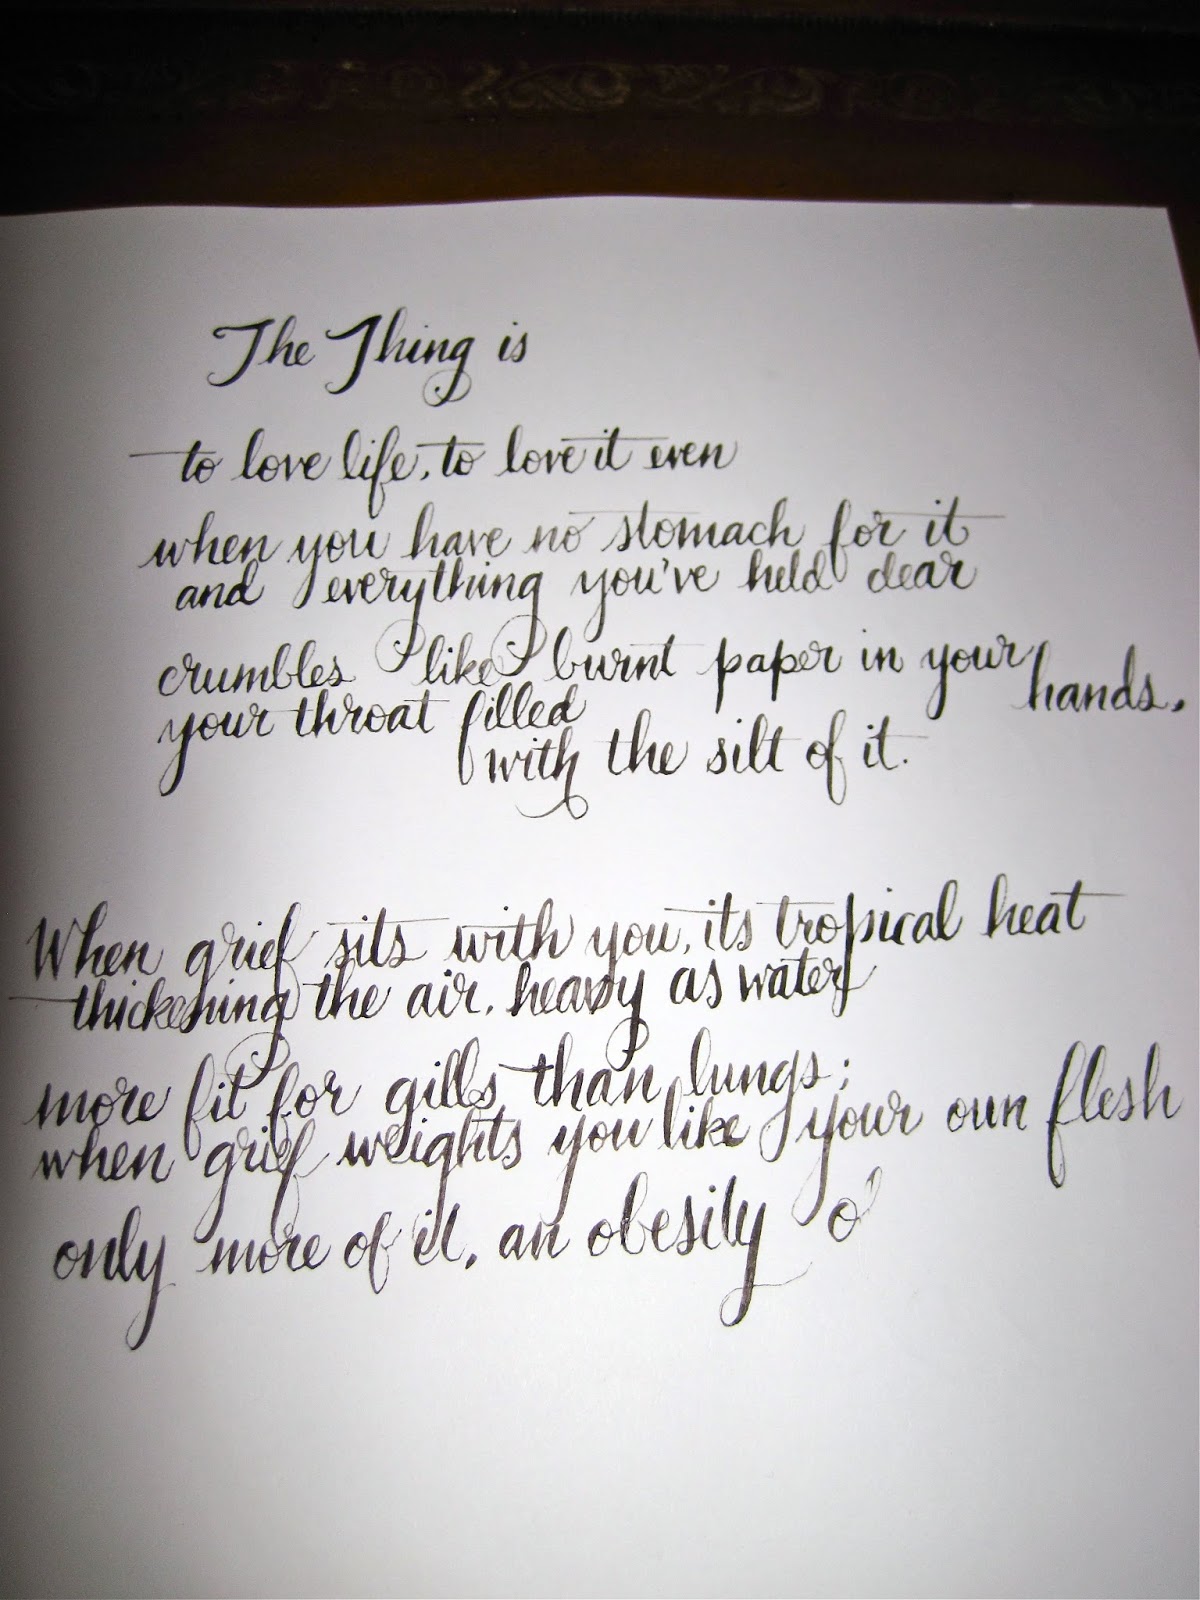 The Thing is
to love life, to love it even
when you have no stomach for it
and everything you've held dear
crumbles like burnt paper in your hands,
your throat filled
with the silt of it.
When grief sits with you, its tropical heat
thickening the air, heavy as water
more fit for gills than lungs;
when grief weights you like your own flesh
only more of it, an obesity o